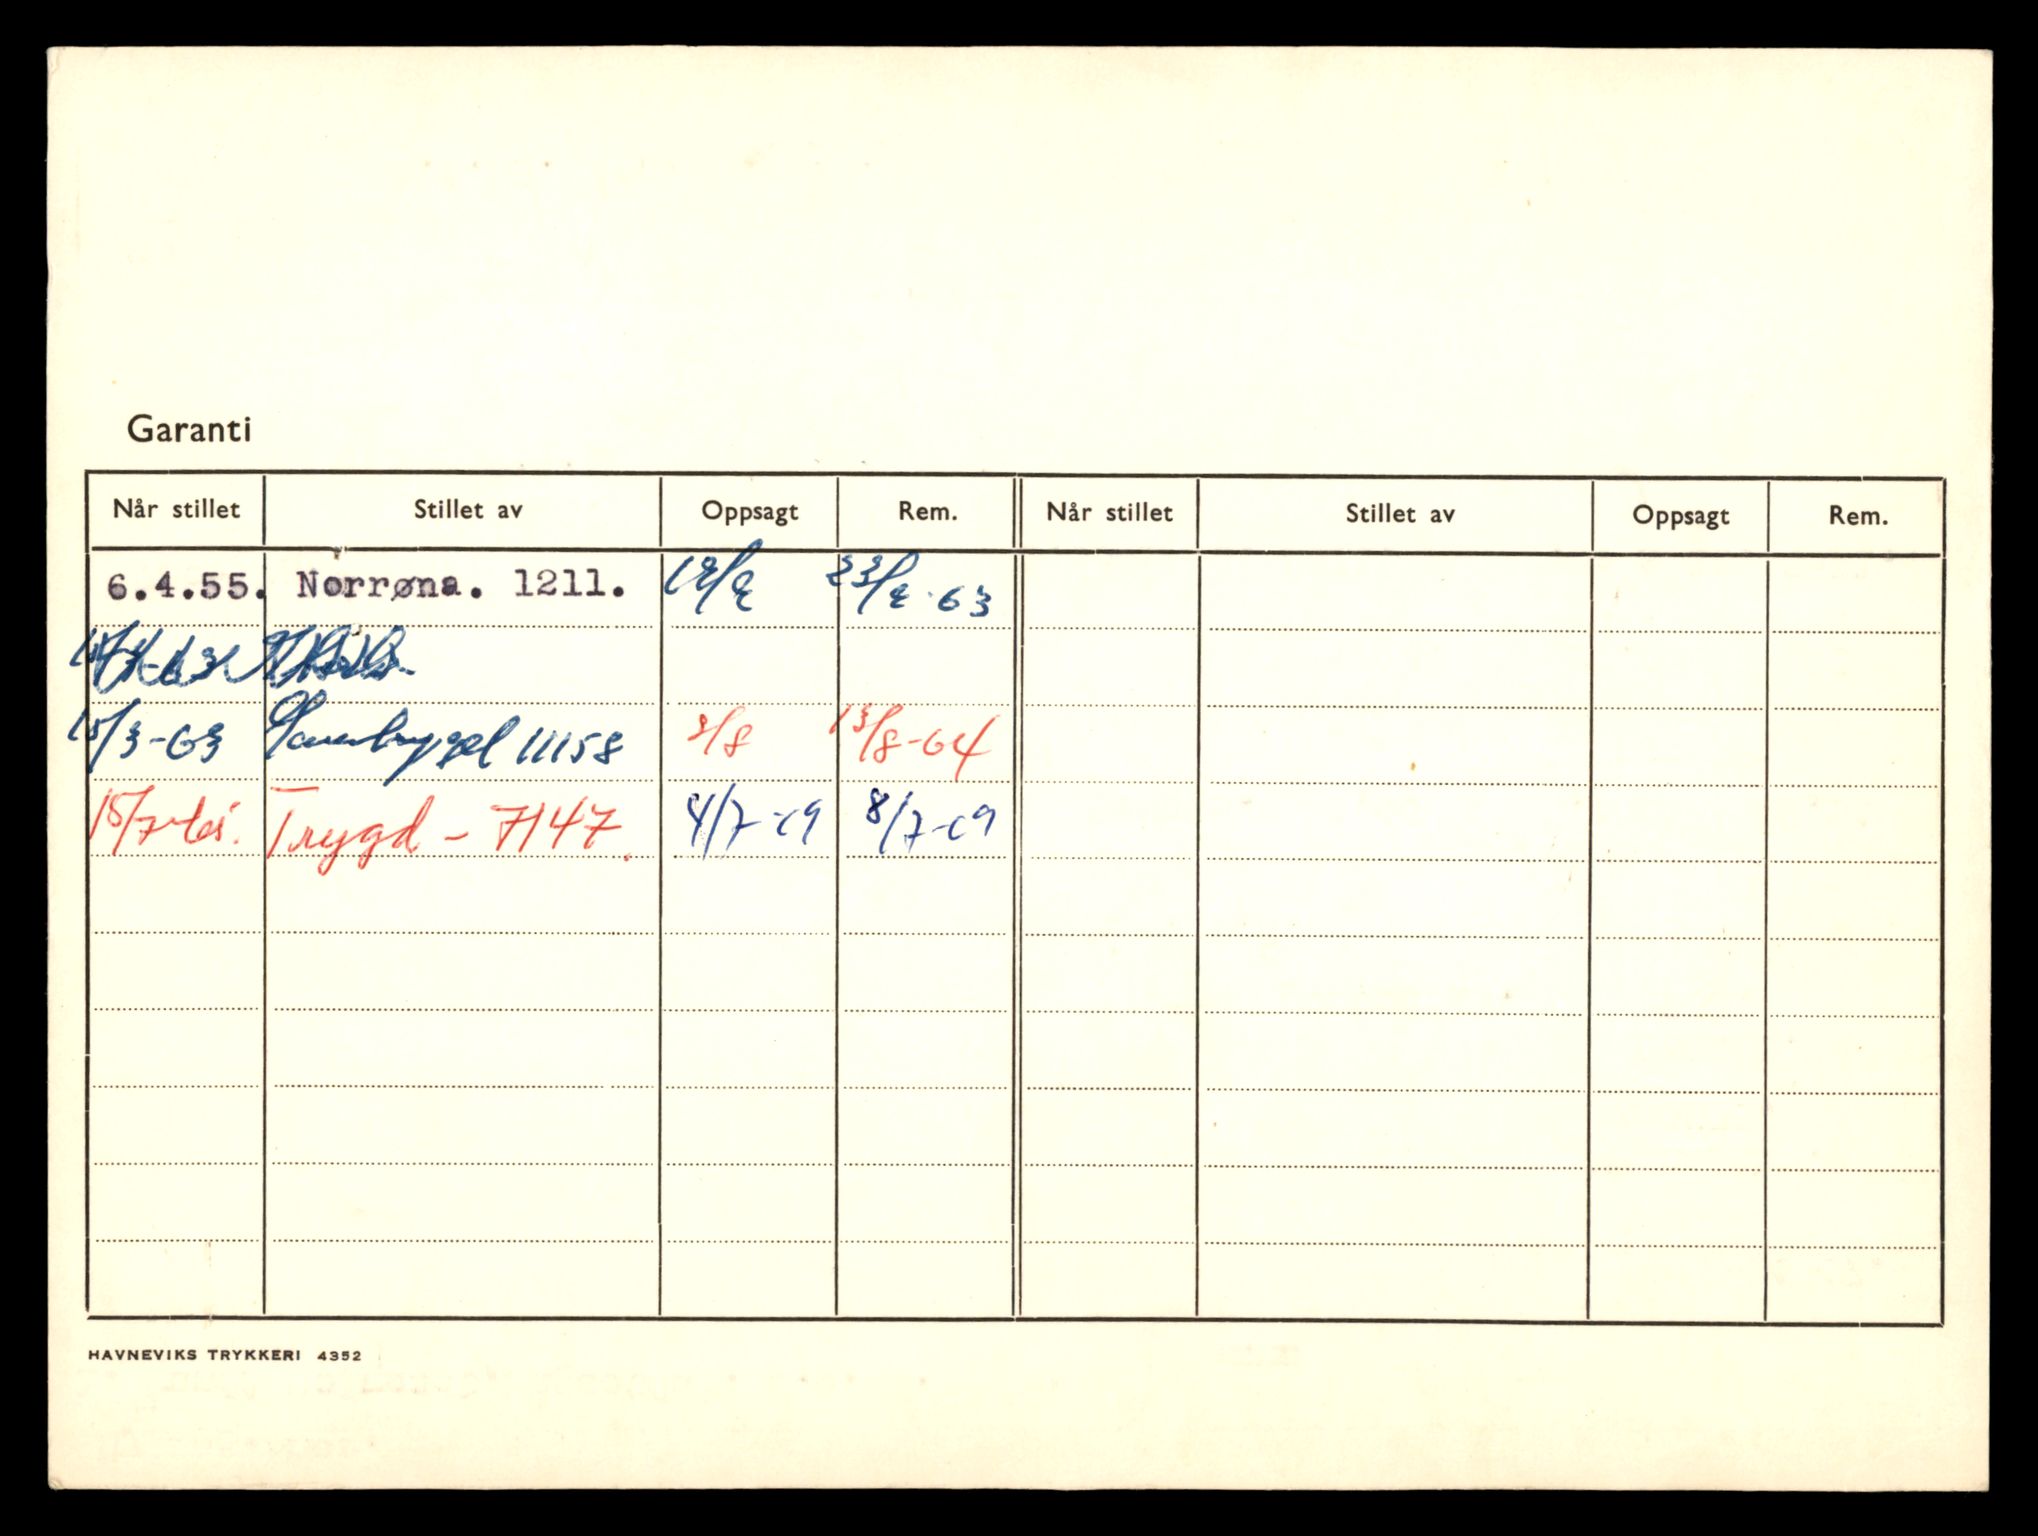 Garanti
Når stillet Stillet av Oppsagt Rem. Når stillet Stillet av Oppsagt Rem.
6.4.55. Norrøna. 1211. 23/2-63
15/3-63 11158 3/8 13/8-64
15/7 Trygd - 7147. 4/7-69 8/7-69
HAVNEVIKS TRYKKERI 4352